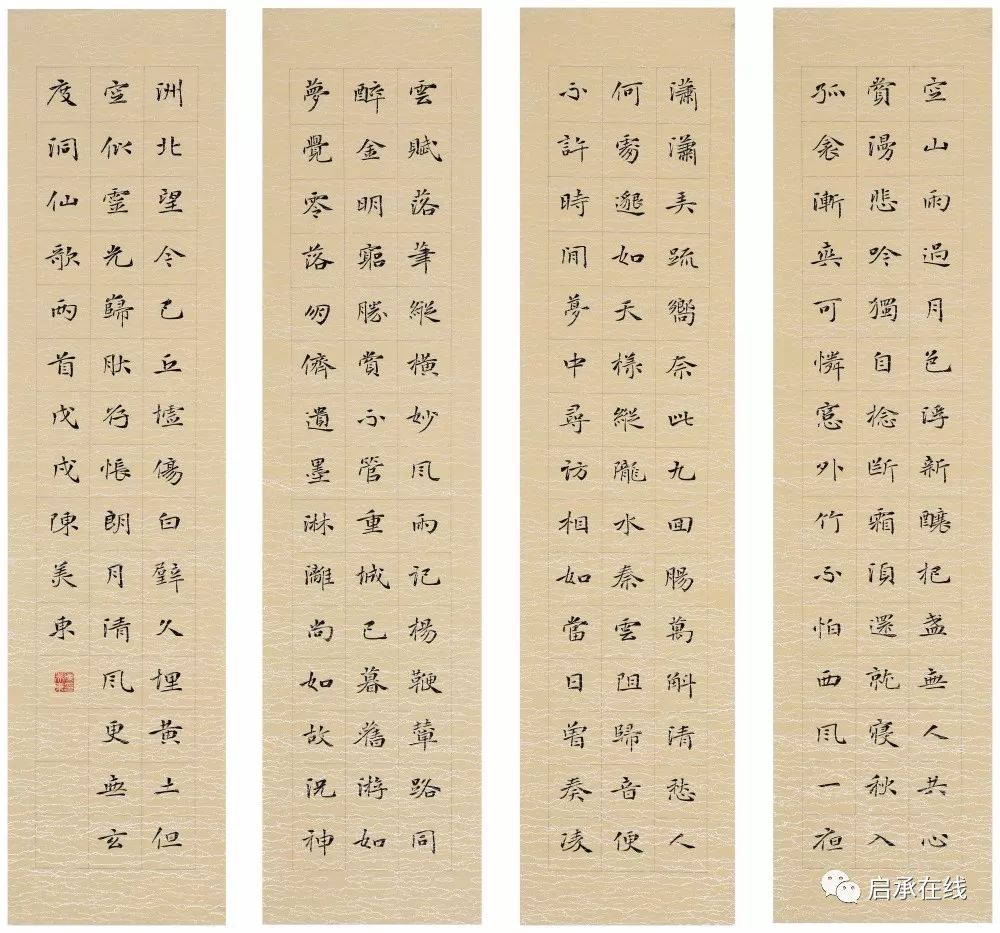 空山雨過月色浮新釀把盞無人共心
賞漫悲吟獨自捻斷霜須還就寢秋入
孤衾漸爽可憐窓外竹不怕西風一夜
瀟瀟弄疏嚮奈此九回腸萬斛清愁人
何處邈如天樣縱隴水秦雲阻歸音便
不許時間夢中尋訪相如當日曾奏淩
雲賦落筆縱橫妙風雨記楊鞭輦路同
醉金明窮勝賞不管重城已暮舊游如
夢覺零落朋儕遺墨淋灕尚如故況神
洲北望今已丘墟傷白璧久埋黃土但
空似靈光歸肰存悵朗月清風更無玄
度洞仙歌兩首戊戌陳美東
启承在线